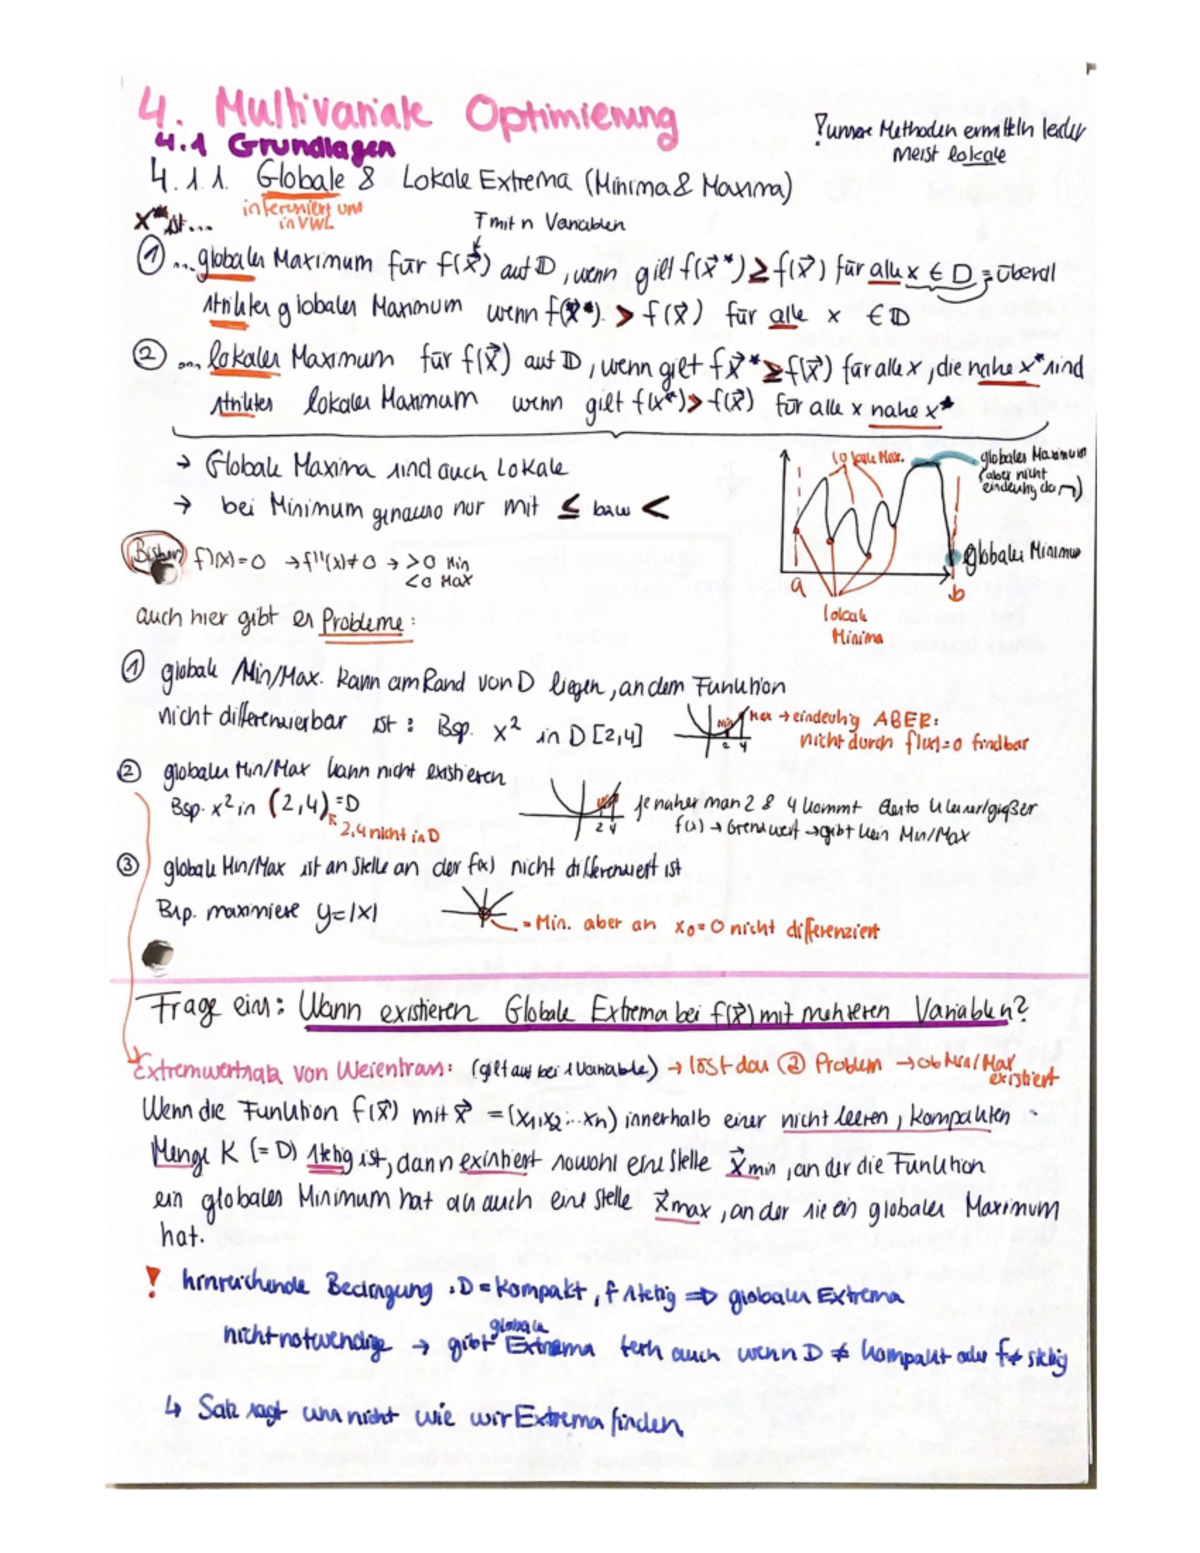 4. Multivariate Optimierung
4.1 Grundlagen
! unsere Methoden ermitteln leider
meist lokale
4.1.1. Globale & Lokale Extrema (Minima & Maxima)
interessiert uns
in VWL
x* ist...
f mit n Variablen
① ...globales Maximum für f(x⃗) auf D, wenn gilt f(x⃗*) ≥ f(x⃗) für alle x ∈ D = überall
striktes globales Maximum wenn f(x⃗*) > f(x⃗) für alle x ∈ D
② ... lokales Maximum für f(x⃗) auf D, wenn gilt f x⃗* ≥ f(x⃗) für alle x, die nahe x* sind
striktes lokales Maximum wenn gilt f(x*) > f(x⃗) für alle x nahe x*
→ Globale Maxima sind auch Lokale
→ bei Minimum genauso nur mit ≤ bzw <
lokale Max.
globales Maximum
(aber nicht
eindeutig da ⌒)
globales Minimum
a
b
lokale
Minima
Bisher f'(x)=0 → f''(x)≠0 → >0 Min
<0 Max
auch hier gibt es Probleme:
① globale Min/Max. kann am Rand von D liegen, an dem Funktion
nicht differenzierbar ist: Bsp. x² in D [2,4]
Min
Max → eindeutig ABER:
2 4
nicht durch f'(x)=0 findbar
② globales Min/Max kann nicht existieren
Bsp. x² in (2,4) = D
2,4 nicht in D
2 4
je näher man 2 & 4 kommt desto kleiner/größer
f(x) → Grenzwert → gibt kein Min/Max
③ globale Min/Max ist an Stelle an der f(x) nicht differenziert ist
Bsp. maximiere y=|x|
= Min. aber an x₀=0 nicht differenziert
Frage eins: Wann existieren Globale Extrema bei f(x⃗) mit mehreren Variablen?
Extremwertsatz von Weierstrass: (gilt auch bei 1 Variable) → löst das ② Problem → ob Min/Max
existiert
Wenn die Funktion f(x⃗) mit x⃗ = (x₁,x₂...xn) innerhalb einer nicht leeren, kompakten
Menge K (= D) stetig ist, dann existiert sowohl eine Stelle x⃗min, an der die Funktion
ein globales Minimum hat als auch eine Stelle x⃗max, an der sie ein globales Maximum
hat.
! hinreichende Bedingung: D = Kompakt, f stetig ⇒ globales Extrema
nicht notwendige → gibt globale Extrema auch wenn D ≠ kompakt oder f ≠ stetig
↳ Satz sagt uns nicht wie wir Extrema finden